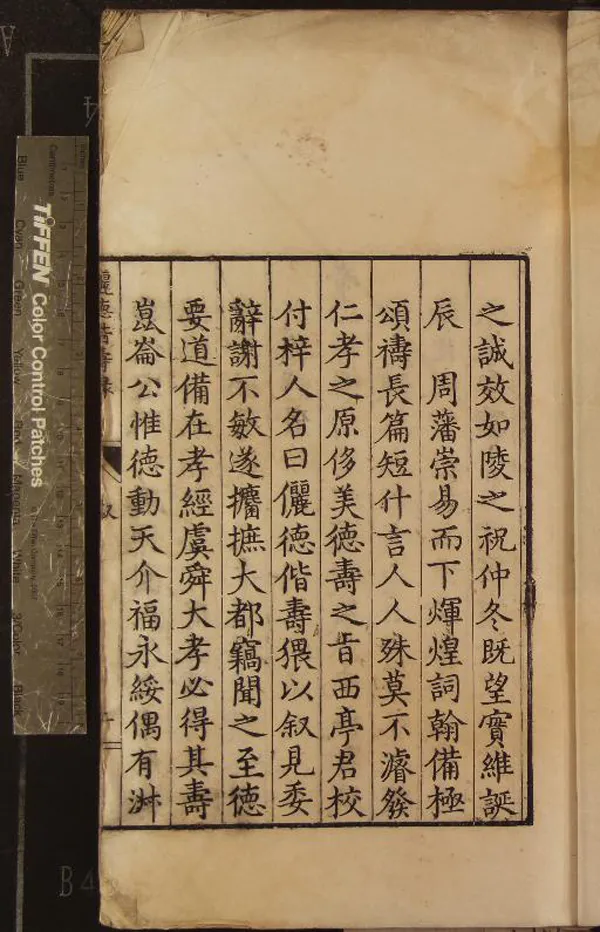 之誠效如陵之祝仲冬既望實維誕
辰　周藩崇易而下煇煌詞翰備極
頌禱長篇短什言人人殊莫不濬發
仁孝之原侈美德壽之旨西亭君校
付梓人名曰儷德偕壽猥以叙見委
辭謝不敏遂攟摭大都竊聞之至德
要道備在孝經虞舜大孝必得其壽
崑崙公惟德動天介福永綏偶有淋
儷德偕壽錄
叙
TIFFEN Color Control Patches
Centimetres
Blue
Cyan
Green
Yellow
Red
Magenta
White
3/Color
Black
B4
A